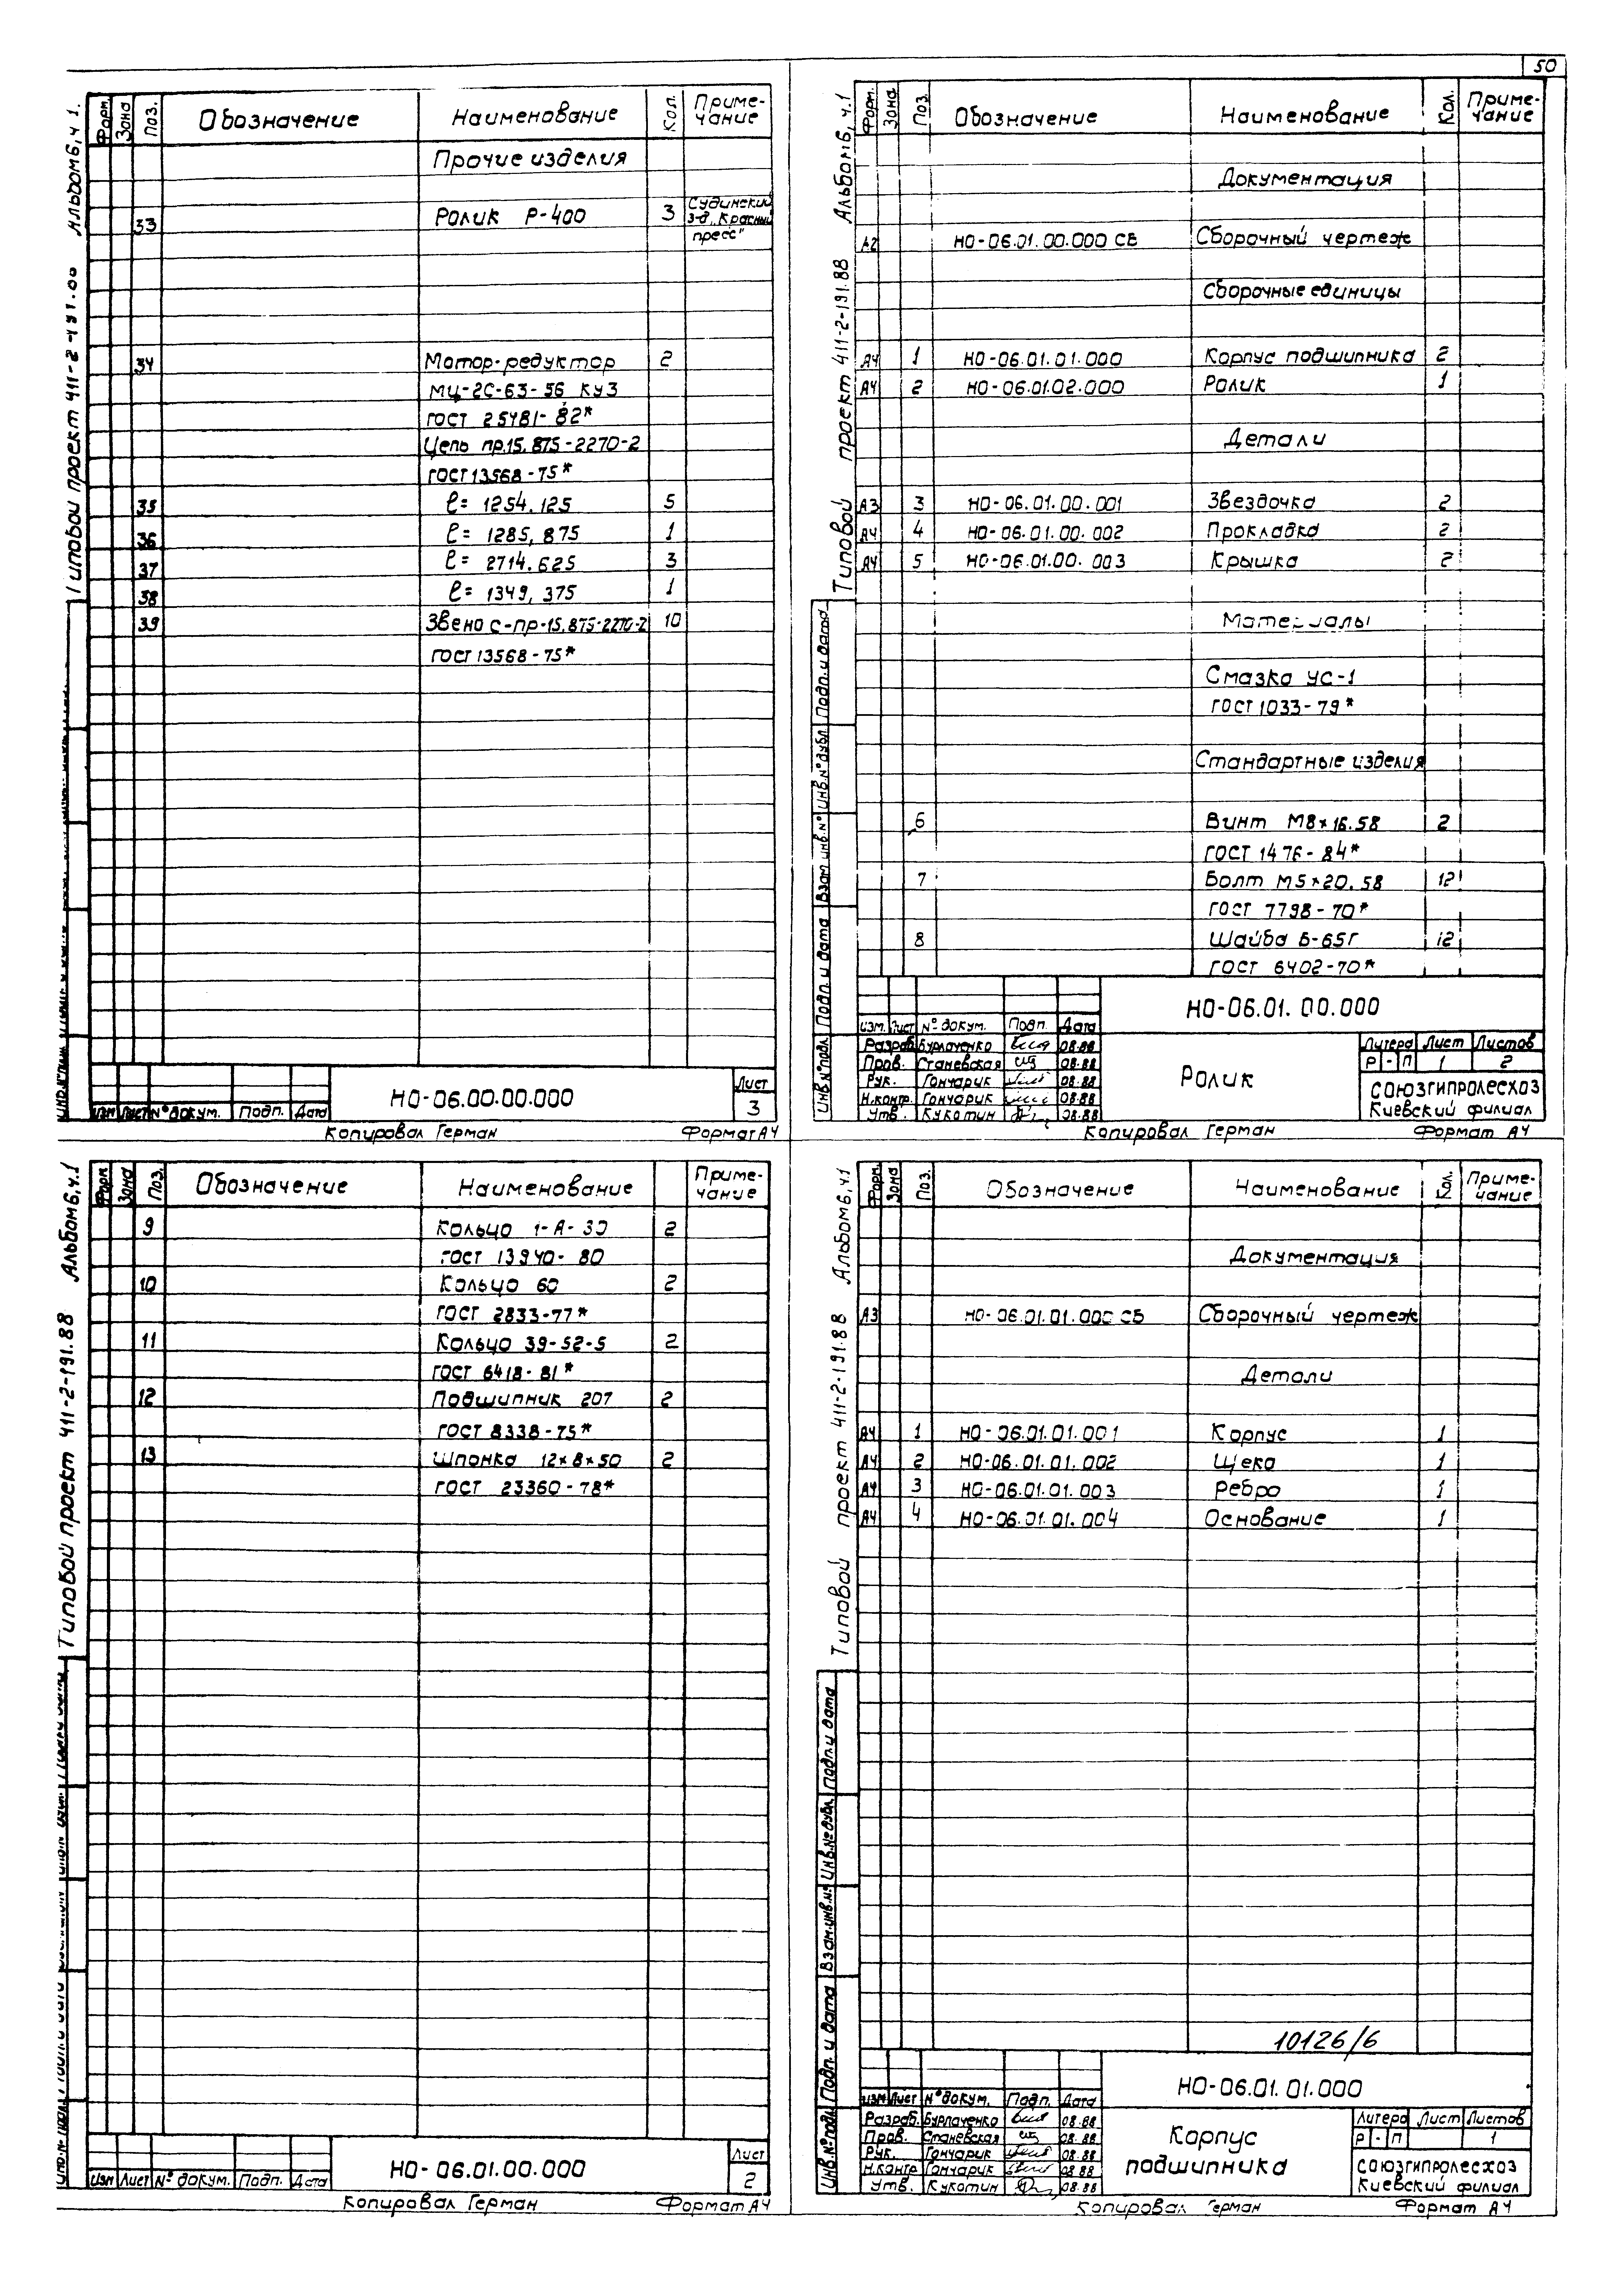 50
Альбом 6, ч 1.
Типовой проект 411-2-191.88
Форм. Зона Поз. Обозначение Наименование Кол. Приме-
чание
Прочие изделия
33 Ролик Р-400 3 Судинский
з-д „Красный
пресс"
34 Мотор-редуктор 2
МЦ-2С-63-56 КУ3
ГОСТ 25481-82*
Цепь пр.15.875-2270-2
ГОСТ 13568-75*
35 ℓ= 1254.125 5
36 ℓ= 1285,875 1
37 ℓ= 2714.625 3
38 ℓ= 1349,375 1
39 Звено С-пр-15.875-2270-2 10
ГОСТ 13568-75*
Изм Лист № докум. Подп. Дата
НО-06.00.00.000
Лист
3
Копировал Герман Формат А4
Альбом 6, ч.1
Типовой проект 411-2-191.88
Форм. Зона Поз. Обозначение Наименование Кол. Приме-
чание
Документация
А2 НО-06.01.00.000 СБ Сборочный чертеж
Сборочные единицы
А4 1 НО-06.01.01.000 Корпус подшипника 2
А4 2 НО-06.01.02.000 Ролик 1
Детали
А3 3 НО-06.01.00.001 Звездочка 2
А4 4 НО-06.01.00.002 Прокладка 2
А4 5 НО-06.01.00.003 Крышка 2
Материалы
Смазка УС-1
ГОСТ 1033-79*
Стандартные изделия
6 Винт М8×16.58 2
ГОСТ 1476-84*
7 Болт М5×20.58 12
ГОСТ 7798-70*
8 Шайба 5-65Г 12
ГОСТ 6402-70*
Инв.№ подл. Подп. и дата Взам инв.№ Инв.№ дубл. Подп. и дата
НО-06.01.00.000
Изм. Лист № докум. Подп. Дата
Разраб. Бурлаченко 08.88
Пров. Станевская 08.88
Рук. Гончарик 08.88
Н.контр. Гончарик 08.88
Утв. Кукотин 08.88
Ролик
Литера Лист Листов
Р - П 1 2
СОЮЗГИПРОЛЕСХОЗ
Киевский филиал
Копировал Герман Формат А4
Альбом 6, ч.1
Типовой проект 411-2-191.88
Форм Зона Поз. Обозначение Наименование Приме-
чание
9 Кольцо 1-А-30 2
ГОСТ 13940-80
10 Кольцо 60 2
ГОСТ 2833-77*
11 Кольцо 39-52-5 2
ГОСТ 6418-81*
12 Подшипник 207 2
ГОСТ 8338-75*
13 Шпонка 12×8×50 2
ГОСТ 23360-78*
Изм Лист № докум. Подп. Дата
НО-06.01.00.000
Лист
2
Копировал Герман Формат А4
Альбом 6, ч.1
Типовой проект 411-2-191.88
Форм. Зона Поз. Обозначение Наименование Кол. Приме-
чание
Документация
А3 НО-06.01.01.000 СБ Сборочный чертеж
Детали
А4 1 НО-06.01.01.001 Корпус 1
А4 2 НО-06.01.01.002 Щека 1
А4 3 НО-06.01.01.003 Ребро 1
А4 4 НО-06.01.01.004 Основание 1
10126/6
Инв.№ подл. Подп. и дата Взам.инв.№ Инв.№ дубл. Подп. и дата
НО-06.01.01.000
Изм Лист № докум. Подп. Дата
Разраб. Бурлаченко 08.88
Пров. Станевская 08.88
Рук. Гончарик 08.88
Н.контр Гончарик 08.88
Утв. Кукотин 08.88
Корпус
подшипника
Литера Лист Листов
Р - П 1
СОЮЗГИПРОЛЕСХОЗ
Киевский филиал
Копировал Герман Формат А4